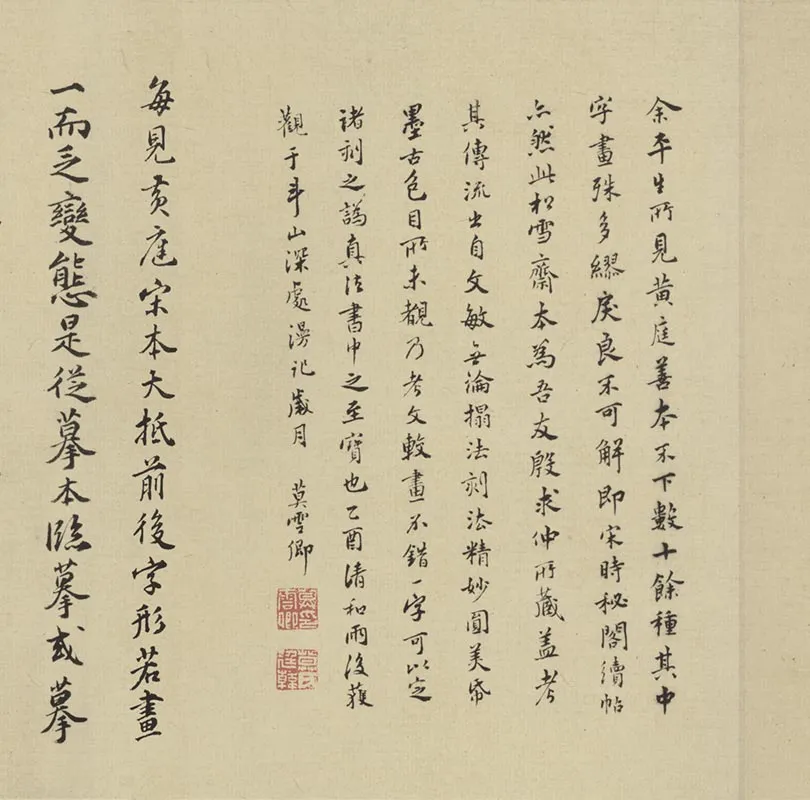 余平生所見黃庭善本不下數十餘種其中
字畫殊多繆戾良不可解即宋時秘閣續帖
亦然此松雪齋本為吾友殷求仲所藏蓋考
其傳流出自文敏无論搨法刻法精妙圓美帋
墨古色目所未覩乃考文較畫不錯一字可以定
諸刻之譌真法書中之至寶也乙酉清和雨後獲
觀于斗山深處漫記歲月 莫雲卿
莫印雲卿
莫氏廷韓
每見黃庭宋本大抵前後字形若畫
一而乏變態是從摹本臨摹或摹